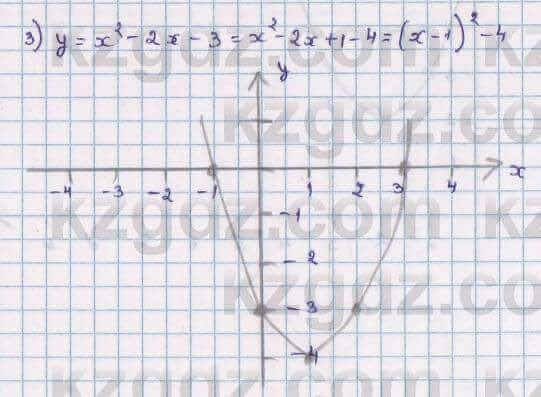 3) y = x² - 2x - 3 = x² - 2x + 1 - 4 = (x - 1)² - 4
y
-4 -3 -2 -1 1 2 3 4 x
-1
-2
-3
-4
kzgdz.com
kzgdz.com
kzgdz.com
kzgdz.com
kzgdz.com